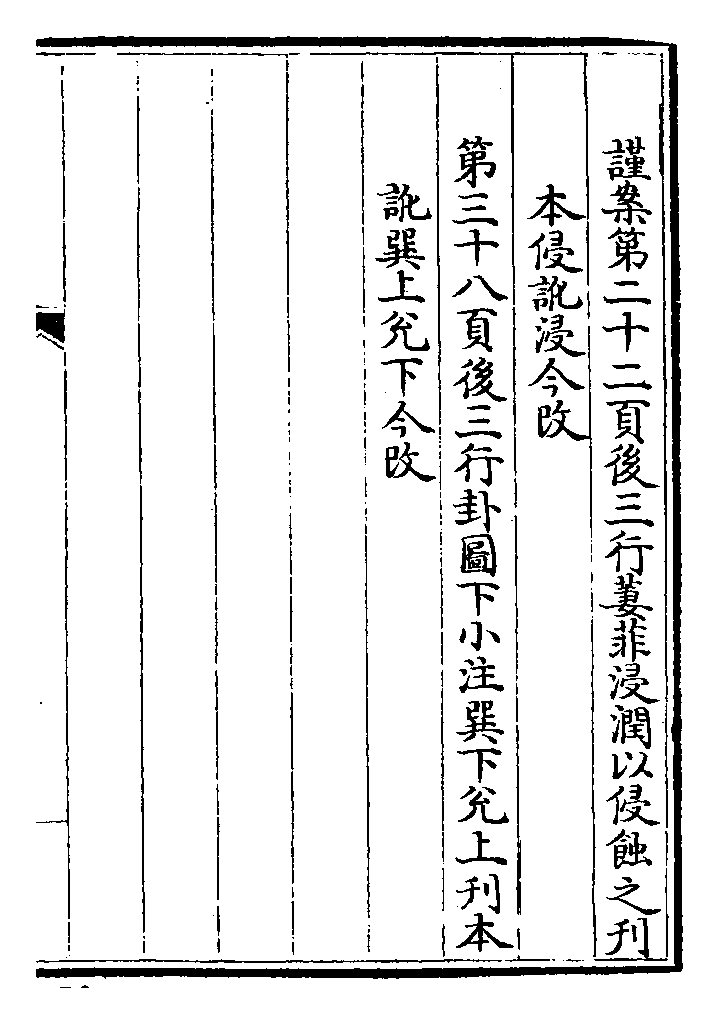 謹案第二十二頁後三行萋菲浸潤以侵蝕之刋
本侵訛浸今改
第三十八頁後三行卦圖下小注巽下兊上刋本
訛巽上兊下今改